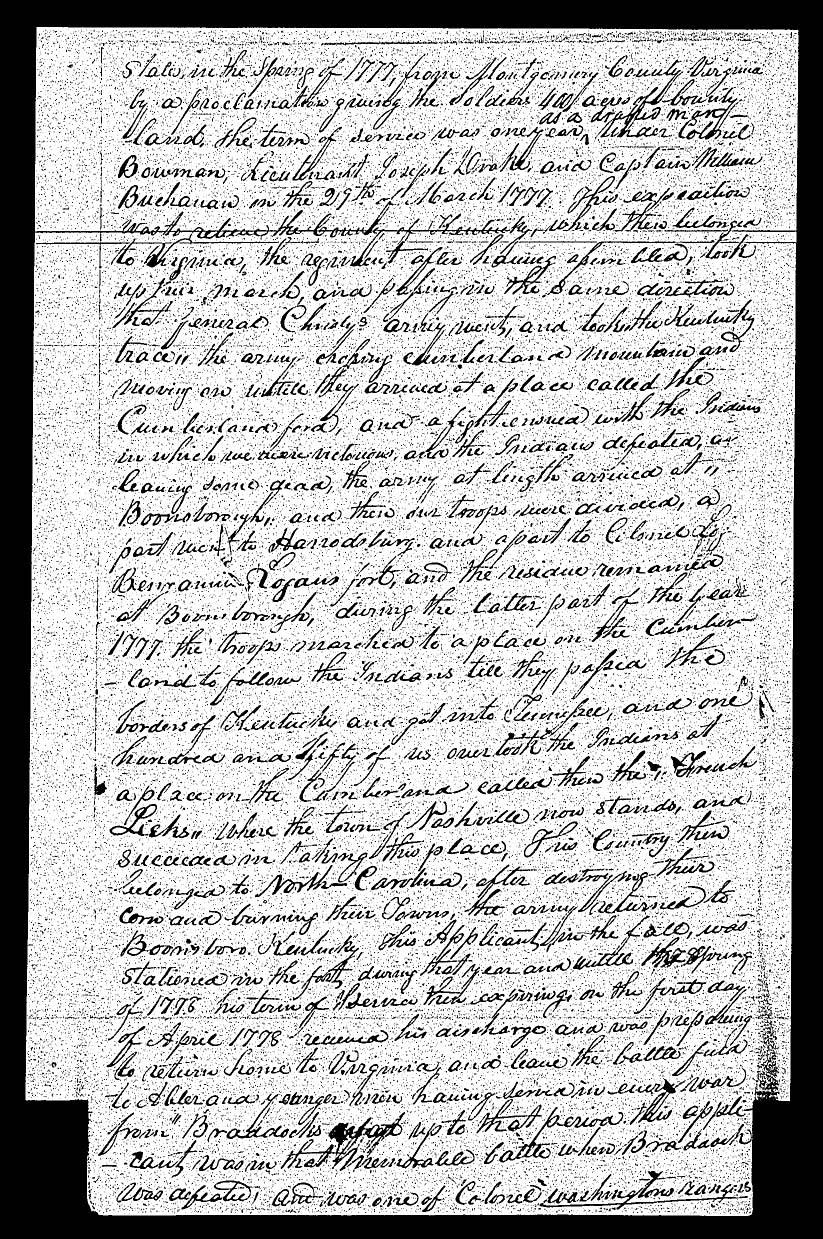 State, in the Spring of 1777, from Montgomery County Virginia
by a proclamation giving the soldiers 400 acres of bounty
as a drafted man
-land, the term of service was one year, under Colonel
Bowman, Lieutenant Joseph Drake, and Captain William
Buchanan on the 29th of March 1777. This expedition
was to relieve the County of Kentucky, which then belonged
to Virginia, the regiment after having assembled, took
up their march, and passing in the same direction
that General Christy's army went, and took the Kentucky
trace,, the army crossing cumberland mountain and
moving on untill they arrived at a place called the
Cumberland ford, and a fight ensued with the Indians
in which we were victorious, and the Indians defeated,
leaving some dead, the army at length arrived at ,,
Boonsborough,. and then our troops were divided, a
part went to Harrodsburg. and a part to Colonel
Benjamin Logans fort, and the residue remained
at Boonsborough, during the latter part of the year
1777. the troops marched to a place on the Cumber-
-land to follow the Indians till they passed the
borders of Kentucky and got into Tennessee, and one
hundred and fifty of us overtook the Indians at
a place on the Cumberland called then the ,, French
Licks,, where the town of Nashville now stands, and
succeeded in taking this place, This Country then
belonged to North-Carolina, after destroying their
corn and burning their Towns, the army returned to
Boonsboro. Kentucky, This Applicant, in the fall, was
stationed in the fort, during that year and untill the Spring
of 1778 his term of service then expiring, on the first day
of April 1778 received his discharge and was preparing
to return home to Virginia, and leave the battle field
to Abler and younger men having served in every war
from" Braddocks up to that period. this appli-
-cant, was in that memorable battle when Braddock
was defeated, and was one of Colonel washingtons rangers